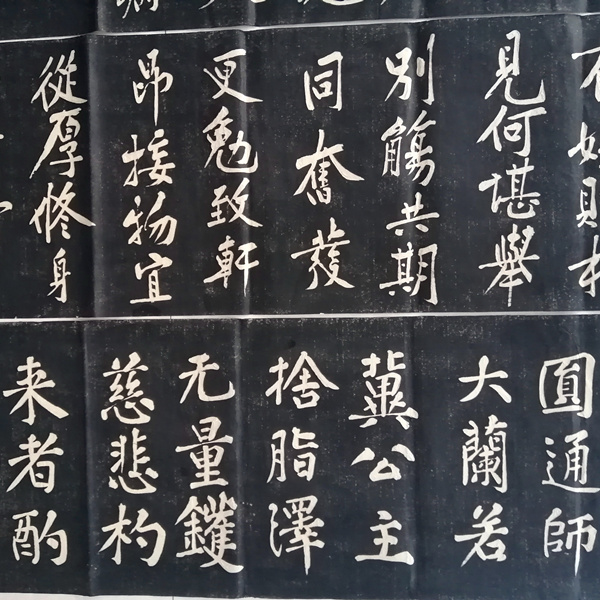 見何堪舉
別觴共期
同奮發
更勉致軒
昂接物宜
從厚修身
圓通師
大蘭若
冀公主
捨脂澤
无量鑊
慈悲杓
来者酌